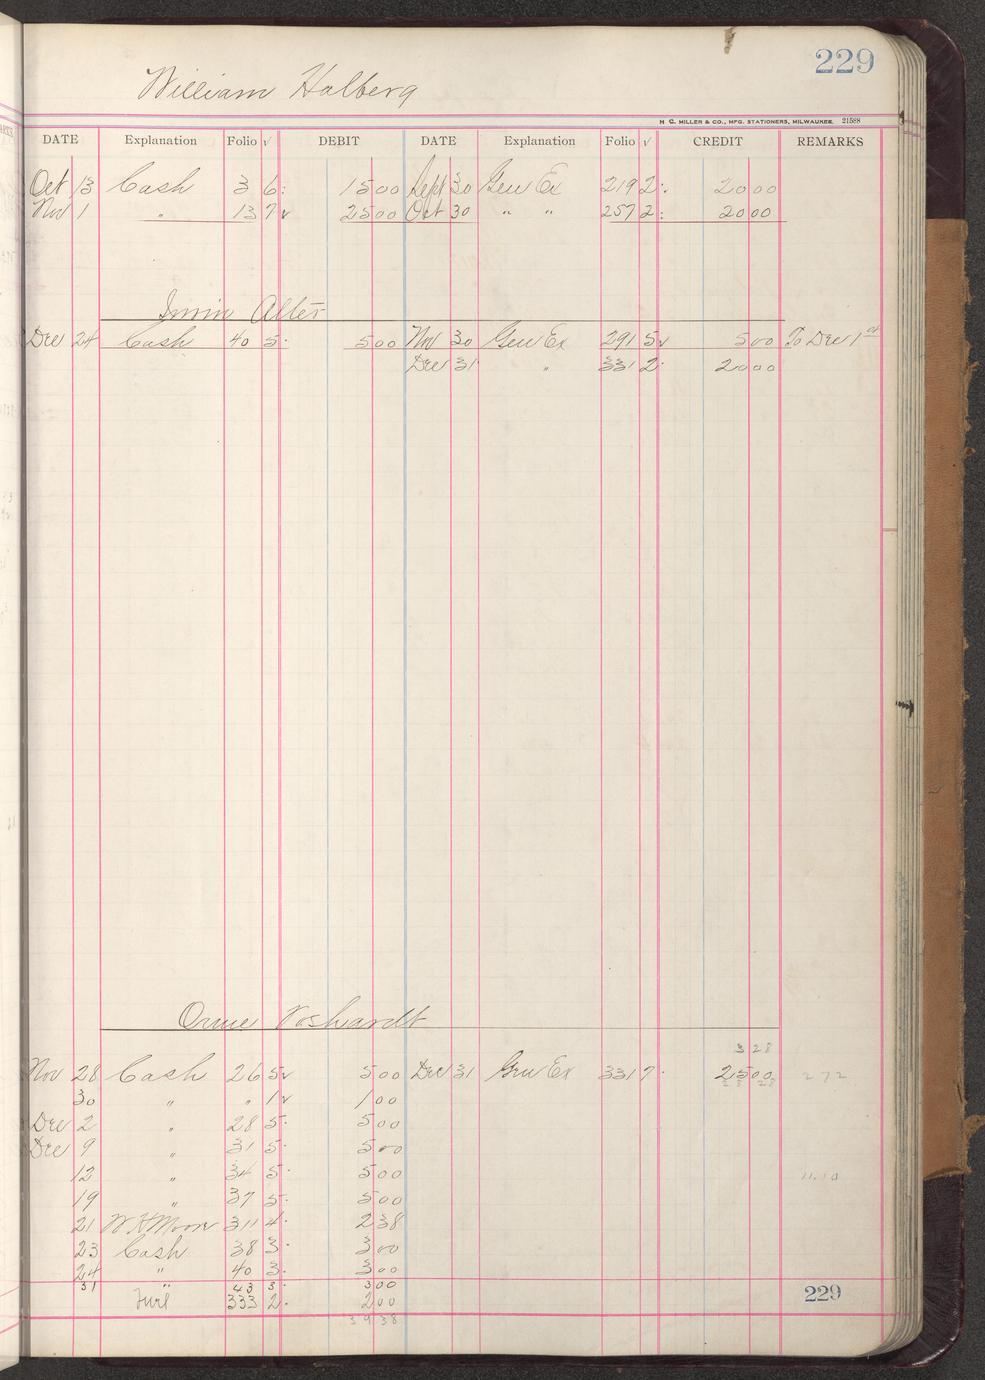 229
William Halberg
H. C. MILLER & CO., MFG. STATIONERS, MILWAUKEE. 21588
DATE Explanation Folio √ DEBIT DATE Explanation Folio √ CREDIT REMARKS
Oct 13 Cash 3 6 1500 Sept 30 Gen Ex 219 2 2000
Nov 1 " 13 7 √ 2500 Oct 30 " " 257 2 2000
Alter
Dec 24 Cash 40 5 500 Nov 30 Gen Ex 291 5 √ 500 To Dec 1st
Dec 31 " 331 2 2000
Orme Voshardt
328
Nov 28 Cash 26 5 √ 500 Dec 31 Gen Ex 331 7 2500 272
30 " " 1 √ 100
Dec 2 " 28 5 500
Dec 9 " 31 5 500
12 " 34 5 500 11.10
19 " 37 5 500
21 W H Moore 311 4 238
23 Cash 38 3 300
24 " 40 3 300
31 " 43 3 300
Furl 333 2 200
3938
229